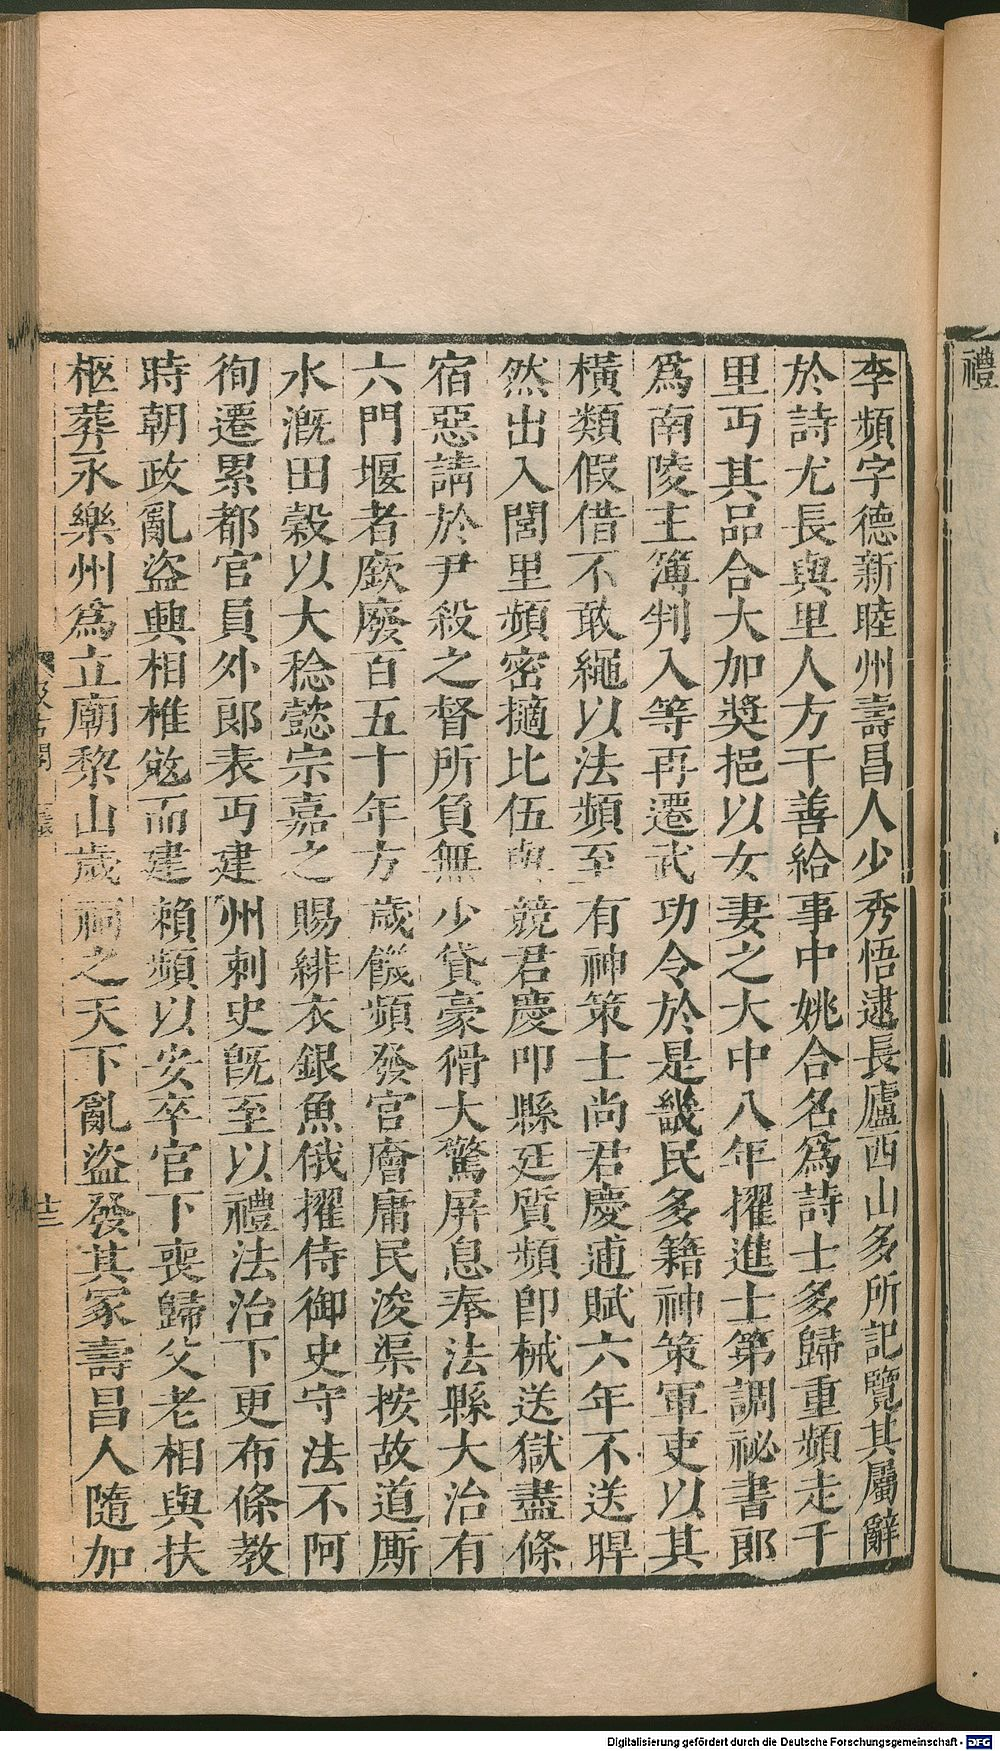 禮
李頻字德新睦州壽昌人少秀悟逮長廬西山多所記覽其屬辭
於詩尤長與里人方干善給事中姚合名爲詩士多歸重頻走千
里丐其品合大加獎挹以女妻之大中八年擢進士第調祕書郎
爲南陵主簿判入等再遷武功令於是畿民多籍神策軍吏以其
橫類假借不敢繩以法頻至有神策士尚君慶逋賦六年不送睅
然出入閭里頻密擿比伍與競君慶叩縣廷質頻即械送獄盡條
宿惡請於尹殺之督所負無少貸豪猾大驚屏息奉法縣大治有
六門堰者廞廢百五十年方歲饑頻發官廥庸民浚渠按故道厮
水溉田穀以大稔懿宗嘉之賜緋衣銀魚俄擢侍御史守法不阿
徇遷累都官員外郎表丐建州刺史旣至以禮法治下更布條教
時朝政亂盜興相椎敚而建賴頻以安卒官下喪歸父老相與扶
柩葬永樂州爲立廟黎山歲祠之天下亂盜發其冢壽昌人隨加
汲古閣
廿三
Digitalisierung gefördert durch die Deutsche Forschungsgemeinschaft - DFG